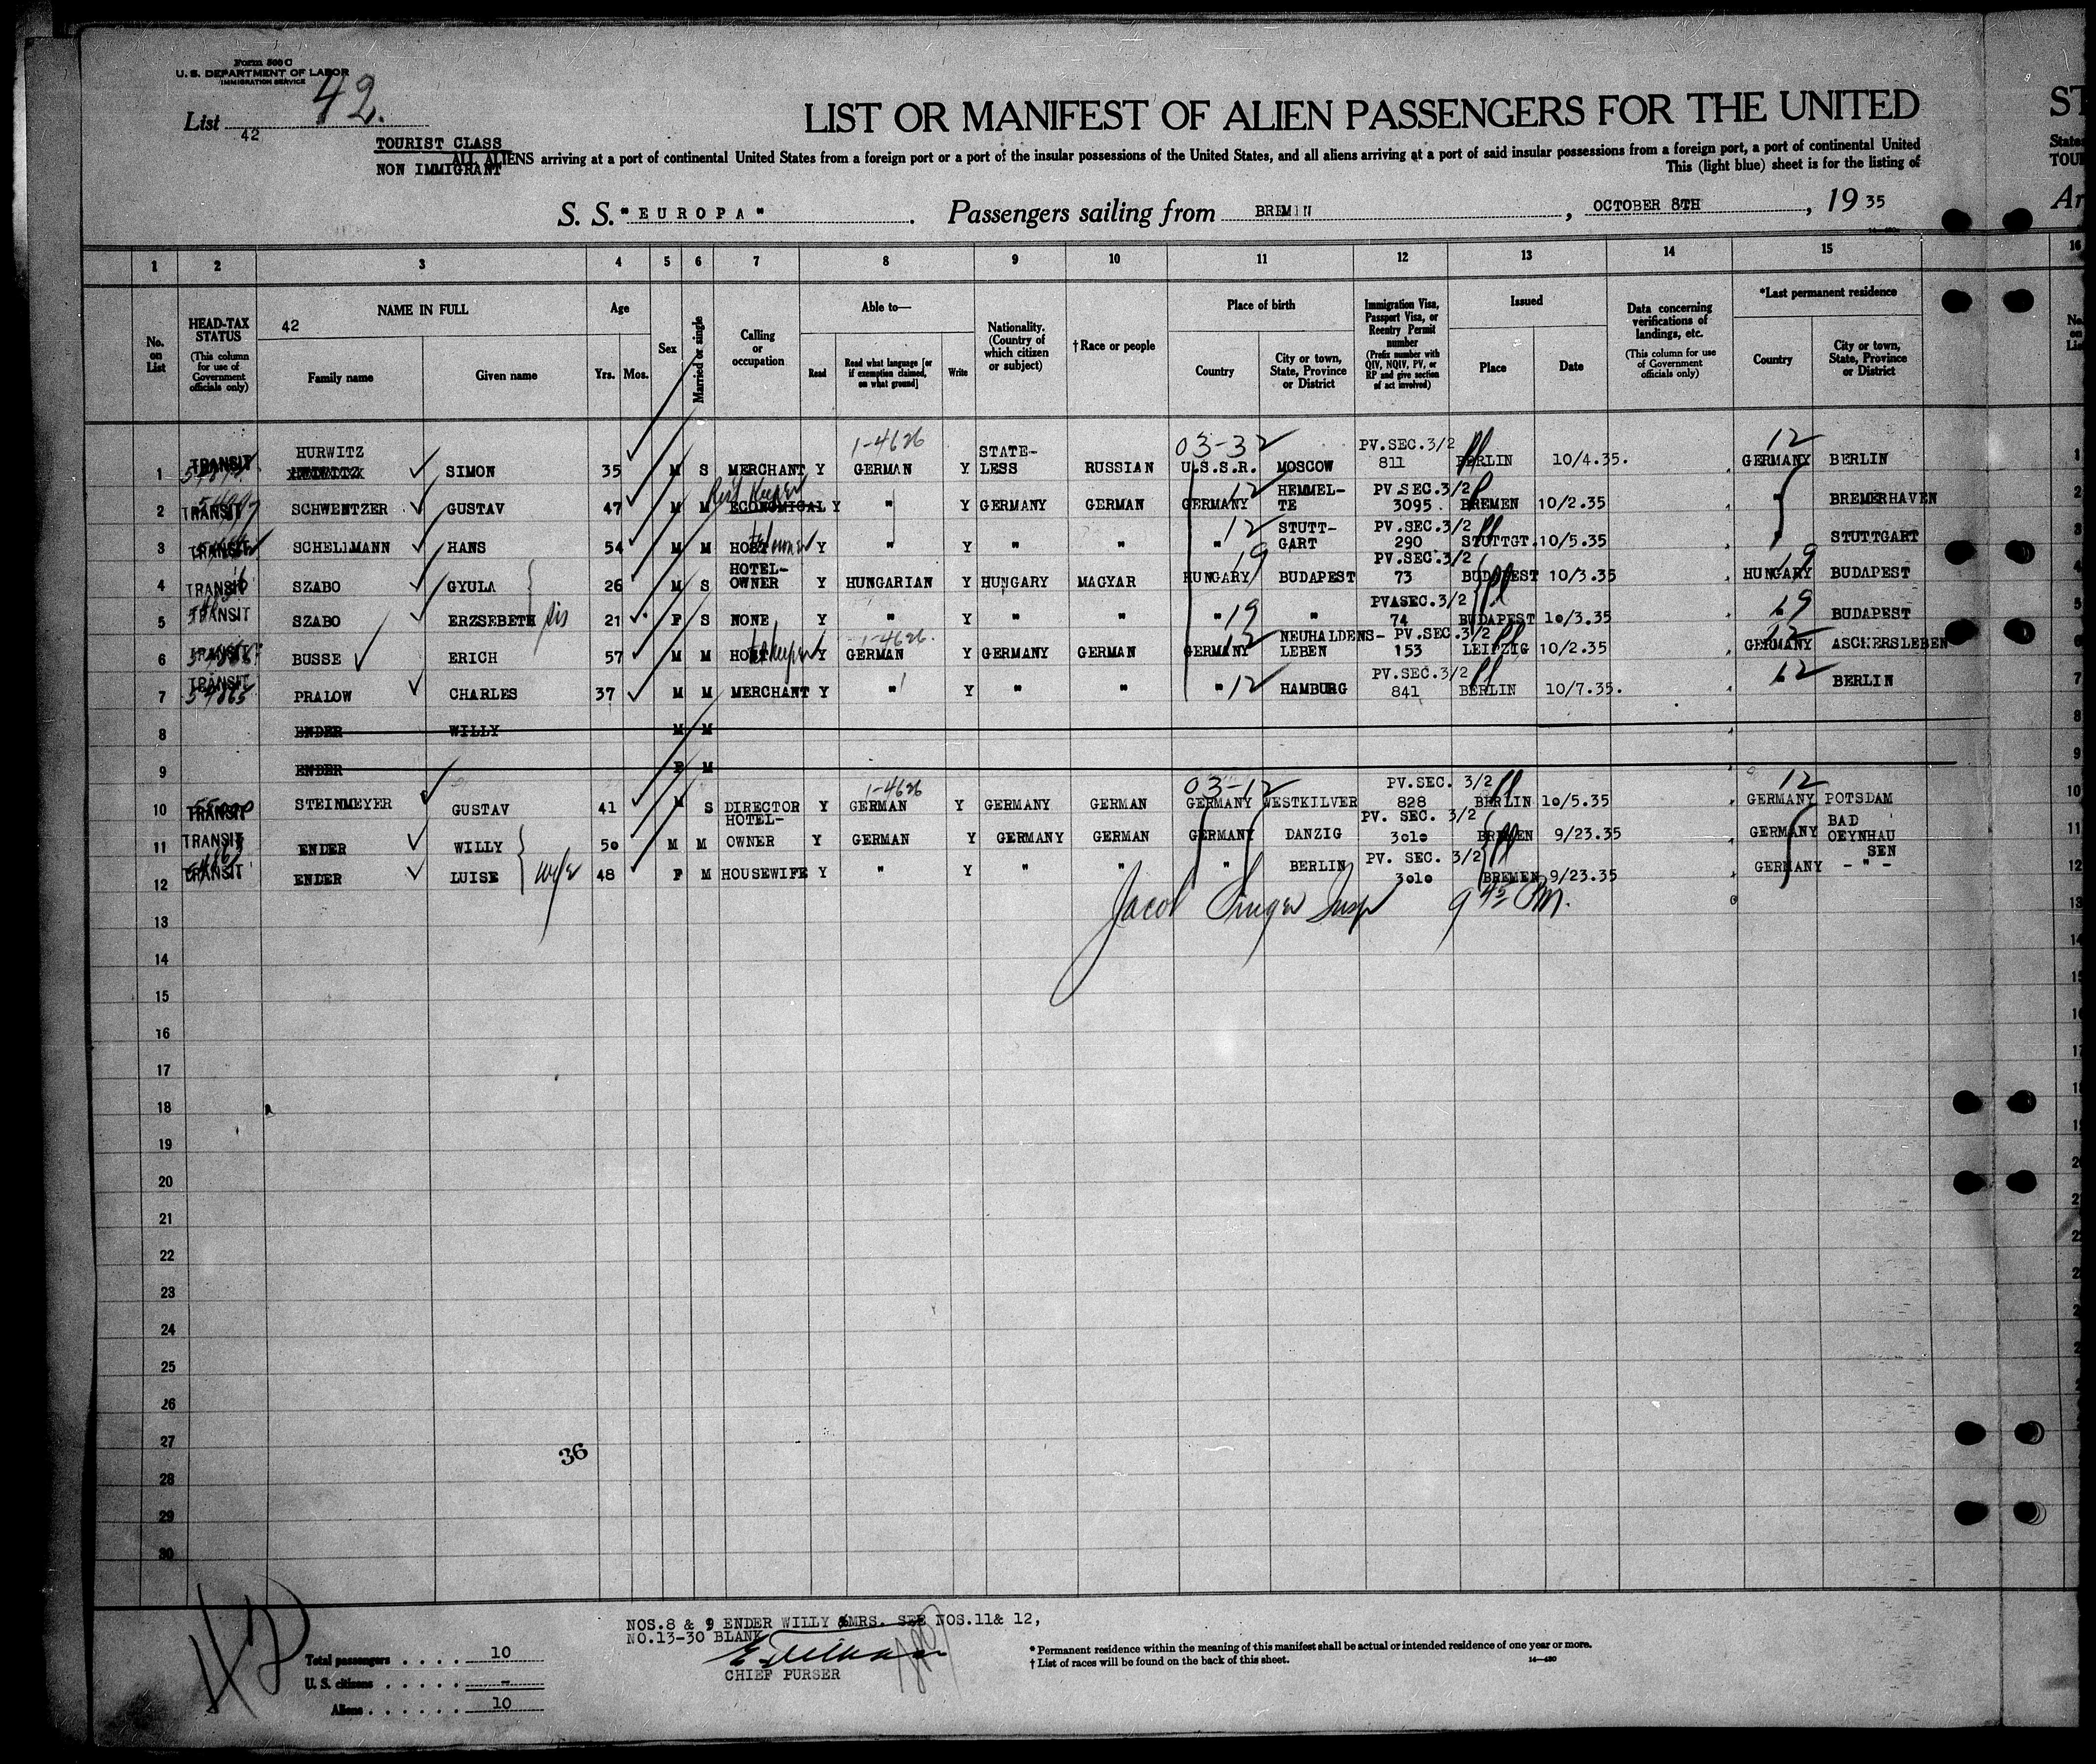 Form 500 C
U. S. DEPARTMENT OF LABOR
IMMIGRATION SERVICE
List 42.
42
LIST OR MANIFEST OF ALIEN PASSENGERS FOR THE UNITED
ST
TOURIST CLASS
NON IMMIGRANT
ALL ALIENS arriving at a port of continental United States from a foreign port or a port of the insular possessions of the United States, and all aliens arriving at a port of said insular possessions from a foreign port, a port of continental United
States
This (light blue) sheet is for the listing of
TOU
S. S. "EUROPA". Passengers sailing from BREMIN, OCTOBER 8TH, 19 35
Ar
1 2 3 4 5 6 7 8 9 10 11 12 13 14 15 16
No. on List
HEAD-TAX STATUS (This column for use of Government officials only)
NAME IN FULL
42
Family name Given name
Age
Yrs. Mos.
Sex
Married or single
Calling or occupation
Able to—
Read
Read what language [or if exemption claimed, on what ground]
Write
Nationality. (Country of which citizen or subject)
†Race or people
Place of birth
Country
City or town, State, Province or District
Immigration Visa, Passport Visa, or Reentry Permit number (Prefix number with QIV, NQIV, PV, or RP and give section of act involved)
Issued
Place Date
Data concerning verifications of landings, etc. (This column for use of Government officials only)
*Last permanent residence
Country
City or town, State, Province or District
No. on List
1 TRANSIT HURWITZ SIMON 35 M S MERCHANT Y 1-4626 GERMAN Y STATE-LESS RUSSIAN 03-32 U.S.S.R. MOSCOW PV.SEC.3/2 811 BERLIN 10/4.35. 12 GERMANY BERLIN
2 TRANSIT SCHWENTZER GUSTAV 47 M M ECONOMICAL Rest Keeper Y " Y GERMANY GERMAN GERMANY 12 HEMMEL-TE PV.SEC.3/2 3095. BREMEN 10/2.35 " BREMERHAVEN
3 TRANSIT SCHELLMANN HANS 54 M M HOTel owner Y " Y " " " 12 STUTT-GART PV.SEC.3/2 290 STUTTGT. 10/5.35 STUTTGART
4 TRANSIT SZABO GYULA 26 M S HOTEL-OWNER Y HUNGARIAN Y HUNGARY MAGYAR HUNGARY 19 BUDAPEST PV.SEC.3/2 73 BUDAPEST 10/3.35 HUNGARY 19 BUDAPEST
5 TRANSIT SZABO ERZSEBETH sis 21 F S NONE Y " Y " " " 19 " PVASEC.3/2 74 BUDAPEST 10/3.35 " 19 BUDAPEST
6 TRANSIT BUSSE ERICH 57 M M HOTel keeper Y 1-4626. GERMAN Y GERMANY GERMAN GERMANY 12 NEUHALDENS-LEBEN PV.SEC.3/2 153 LEIPZIG 10/2.35 GERMANY 12 ASCHERSLEBEN
7 TRANSIT 54865 PRALOW CHARLES 37 M M MERCHANT Y " Y " " " 12 HAMBURG PV.SEC.3/2 841 BERLIN 10/7.35. " 12 BERLIN
8 ENDER WILLY M M
9 ENDER F M
10 TRANSIT STEINMEYER GUSTAV 41 M S DIRECTOR Y 1-4626 GERMAN Y GERMANY GERMAN 03-12 GERMANY WESTKILVER PV.SEC. 3/2 828 BERLIN 10/5.35 12 GERMANY POTSDAM
11 TRANSIT ENDER WILLY 50 M M HOTEL-OWNER Y GERMAN Y GERMANY GERMAN GERMANY DANZIG PV. SEC. 3/2 3010 BREMEN 9/23.35 GERMANY BAD OEYNHAUSEN
12 TRANSIT ENDER LUISE wife 48 F M HOUSEWIFE Y " Y " " " BERLIN PV. SEC. 3/2 3010 BREMEN 9/23.35 GERMANY - " -
Jacob Singer Insp 9 45 PM.
13
14
15
16
17
18
19
20
21
22
23
24
25
26
27
28
29
30
36
42
NOS.8 & 9 ENDER WILLY &MRS. SEE NOS.11& 12,
NO.13-30 BLANK
CHIEF PURSER
Total passengers . . . . 10
U. S. citizens . . . . . -
Aliens . . . . . . 10
* Permanent residence within the meaning of this manifest shall be actual or intended residence of one year or more.
† List of races will be found on the back of this sheet.
14—480